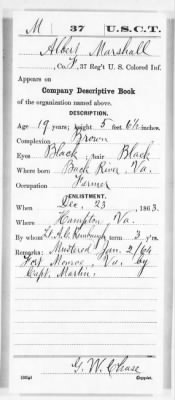 M 37 U.S.C.T.
Albert Marshall
Co. F, 37 Reg't U. S. Colored Inf.
Appears on
Company Descriptive Book
of the organization named above.
DESCRIPTION.
Age 19 years; height 5 feet 6½ inches.
Complexion Brown
Eyes Black; hair Black
Where born Back River, Va.
Occupation Farmer
ENLISTMENT.
When Dec. 23, 1863.
Where Hampton Va.
By whom Lt. A. C. term 3 y'rs.
Remarks: Mustered Jan. 2/64
Fort Monroe, Va. by
Capt. Martin.
G. W. Chase
Copyist.